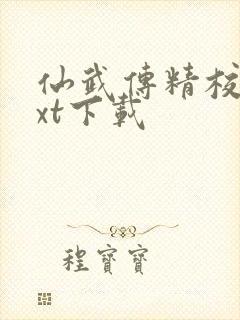 仙武傳精校
xt下載
程寶寶